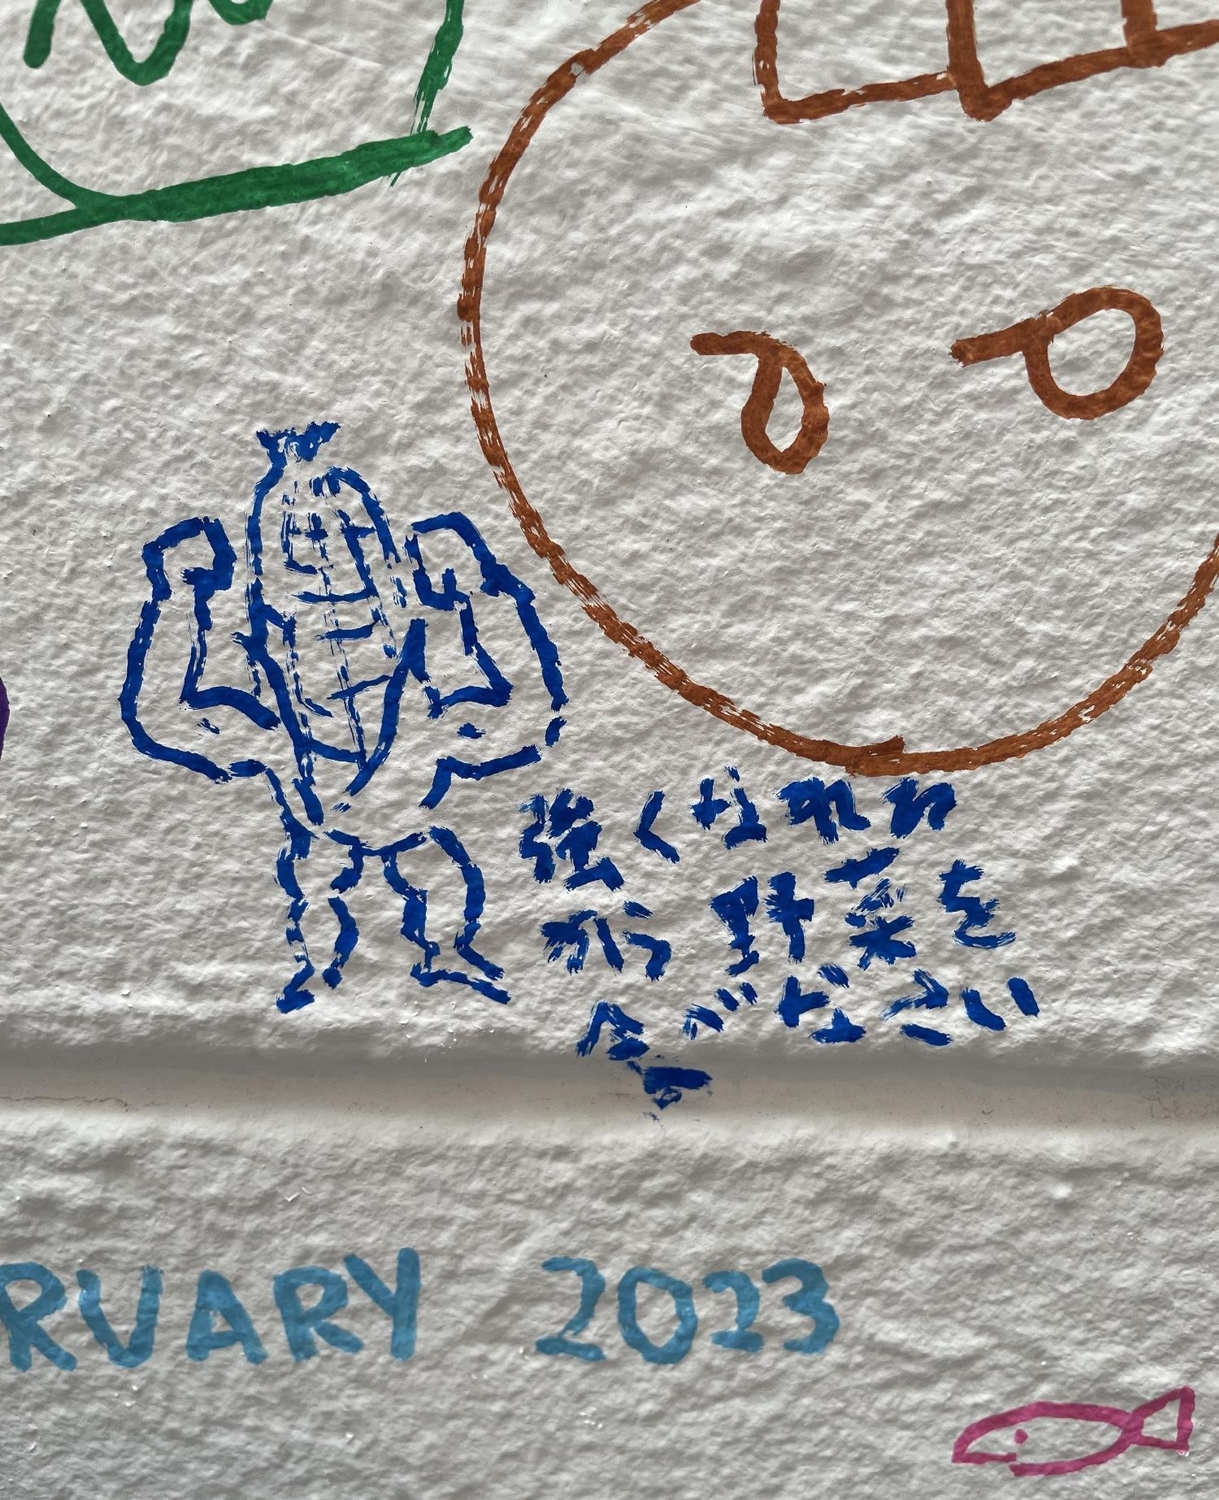 強くなれん
から 野菜を
食べなさい
RUARY 2023